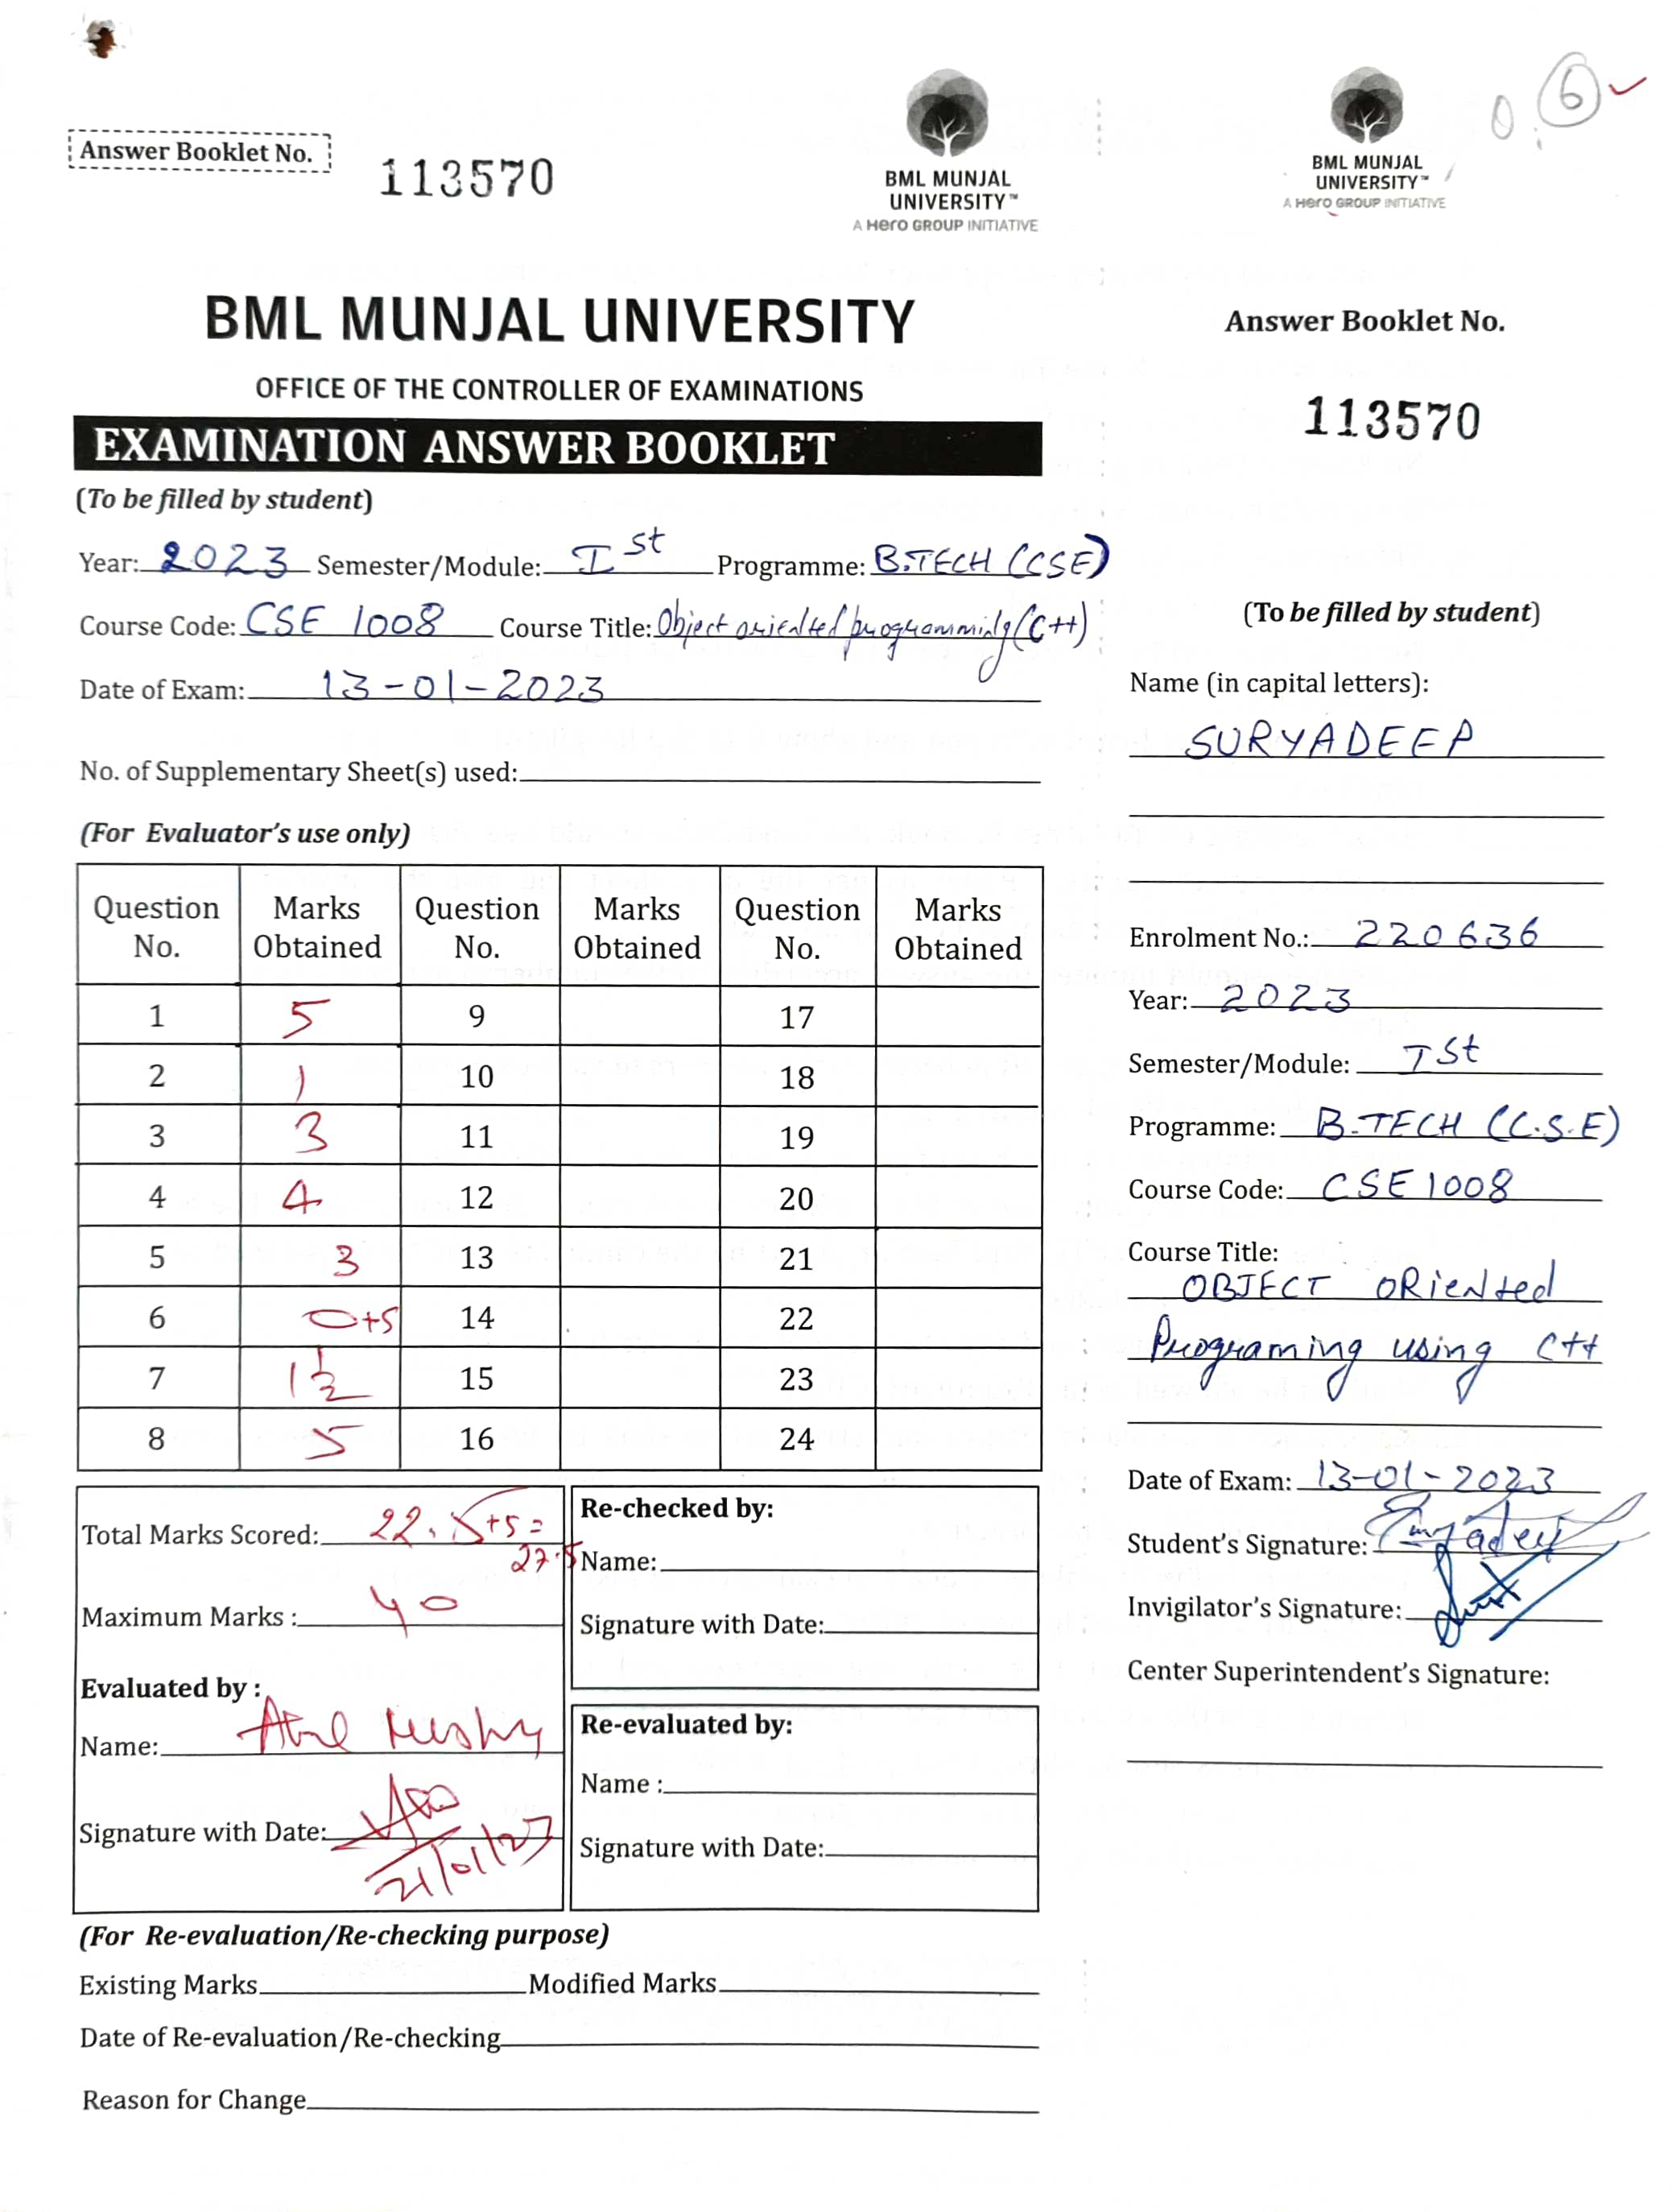 6
Answer Booklet No.
113570
BML MUNJAL
UNIVERSITY™
A Hero GROUP INITIATIVE
BML MUNJAL
UNIVERSITY™
A Hero GROUP INITIATIVE
BML MUNJAL UNIVERSITY
OFFICE OF THE CONTROLLER OF EXAMINATIONS
EXAMINATION ANSWER BOOKLET
(To be filled by student)
Year: 2023 Semester/Module: I st Programme: B.TECH (CSE)
Course Code: CSE 1008 Course Title: Object oriented programming (C++)
Date of Exam: 13-01-2023
No. of Supplementary Sheet(s) used:
(For Evaluator's use only)
Question No. Marks Obtained Question No. Marks Obtained Question No. Marks Obtained
1 5 9 17
2 1 10 18
3 3 11 19
4 4 12 20
5 3 13 21
6 0+5 14 22
7 1½ 15 23
8 5 16 24
Total Marks Scored: 22.5+5=
27.5
Maximum Marks : 40
Evaluated by :
Name:
Signature with Date: 21/01/23
Re-checked by:
Name:
Signature with Date:
Re-evaluated by:
Name :
Signature with Date:
(For Re-evaluation/Re-checking purpose)
Existing Marks Modified Marks
Date of Re-evaluation/Re-checking
Reason for Change
Answer Booklet No.
113570
(To be filled by student)
Name (in capital letters):
SURYADEEP
Enrolment No.: 220636
Year: 2023
Semester/Module: I st
Programme: B.TECH (C.S.E)
Course Code: CSE 1008
Course Title:
OBJECT ORiented
Programing using C++
Date of Exam: 13-01-2023
Student's Signature: Suryadeep
Invigilator's Signature:
Center Superintendent's Signature: